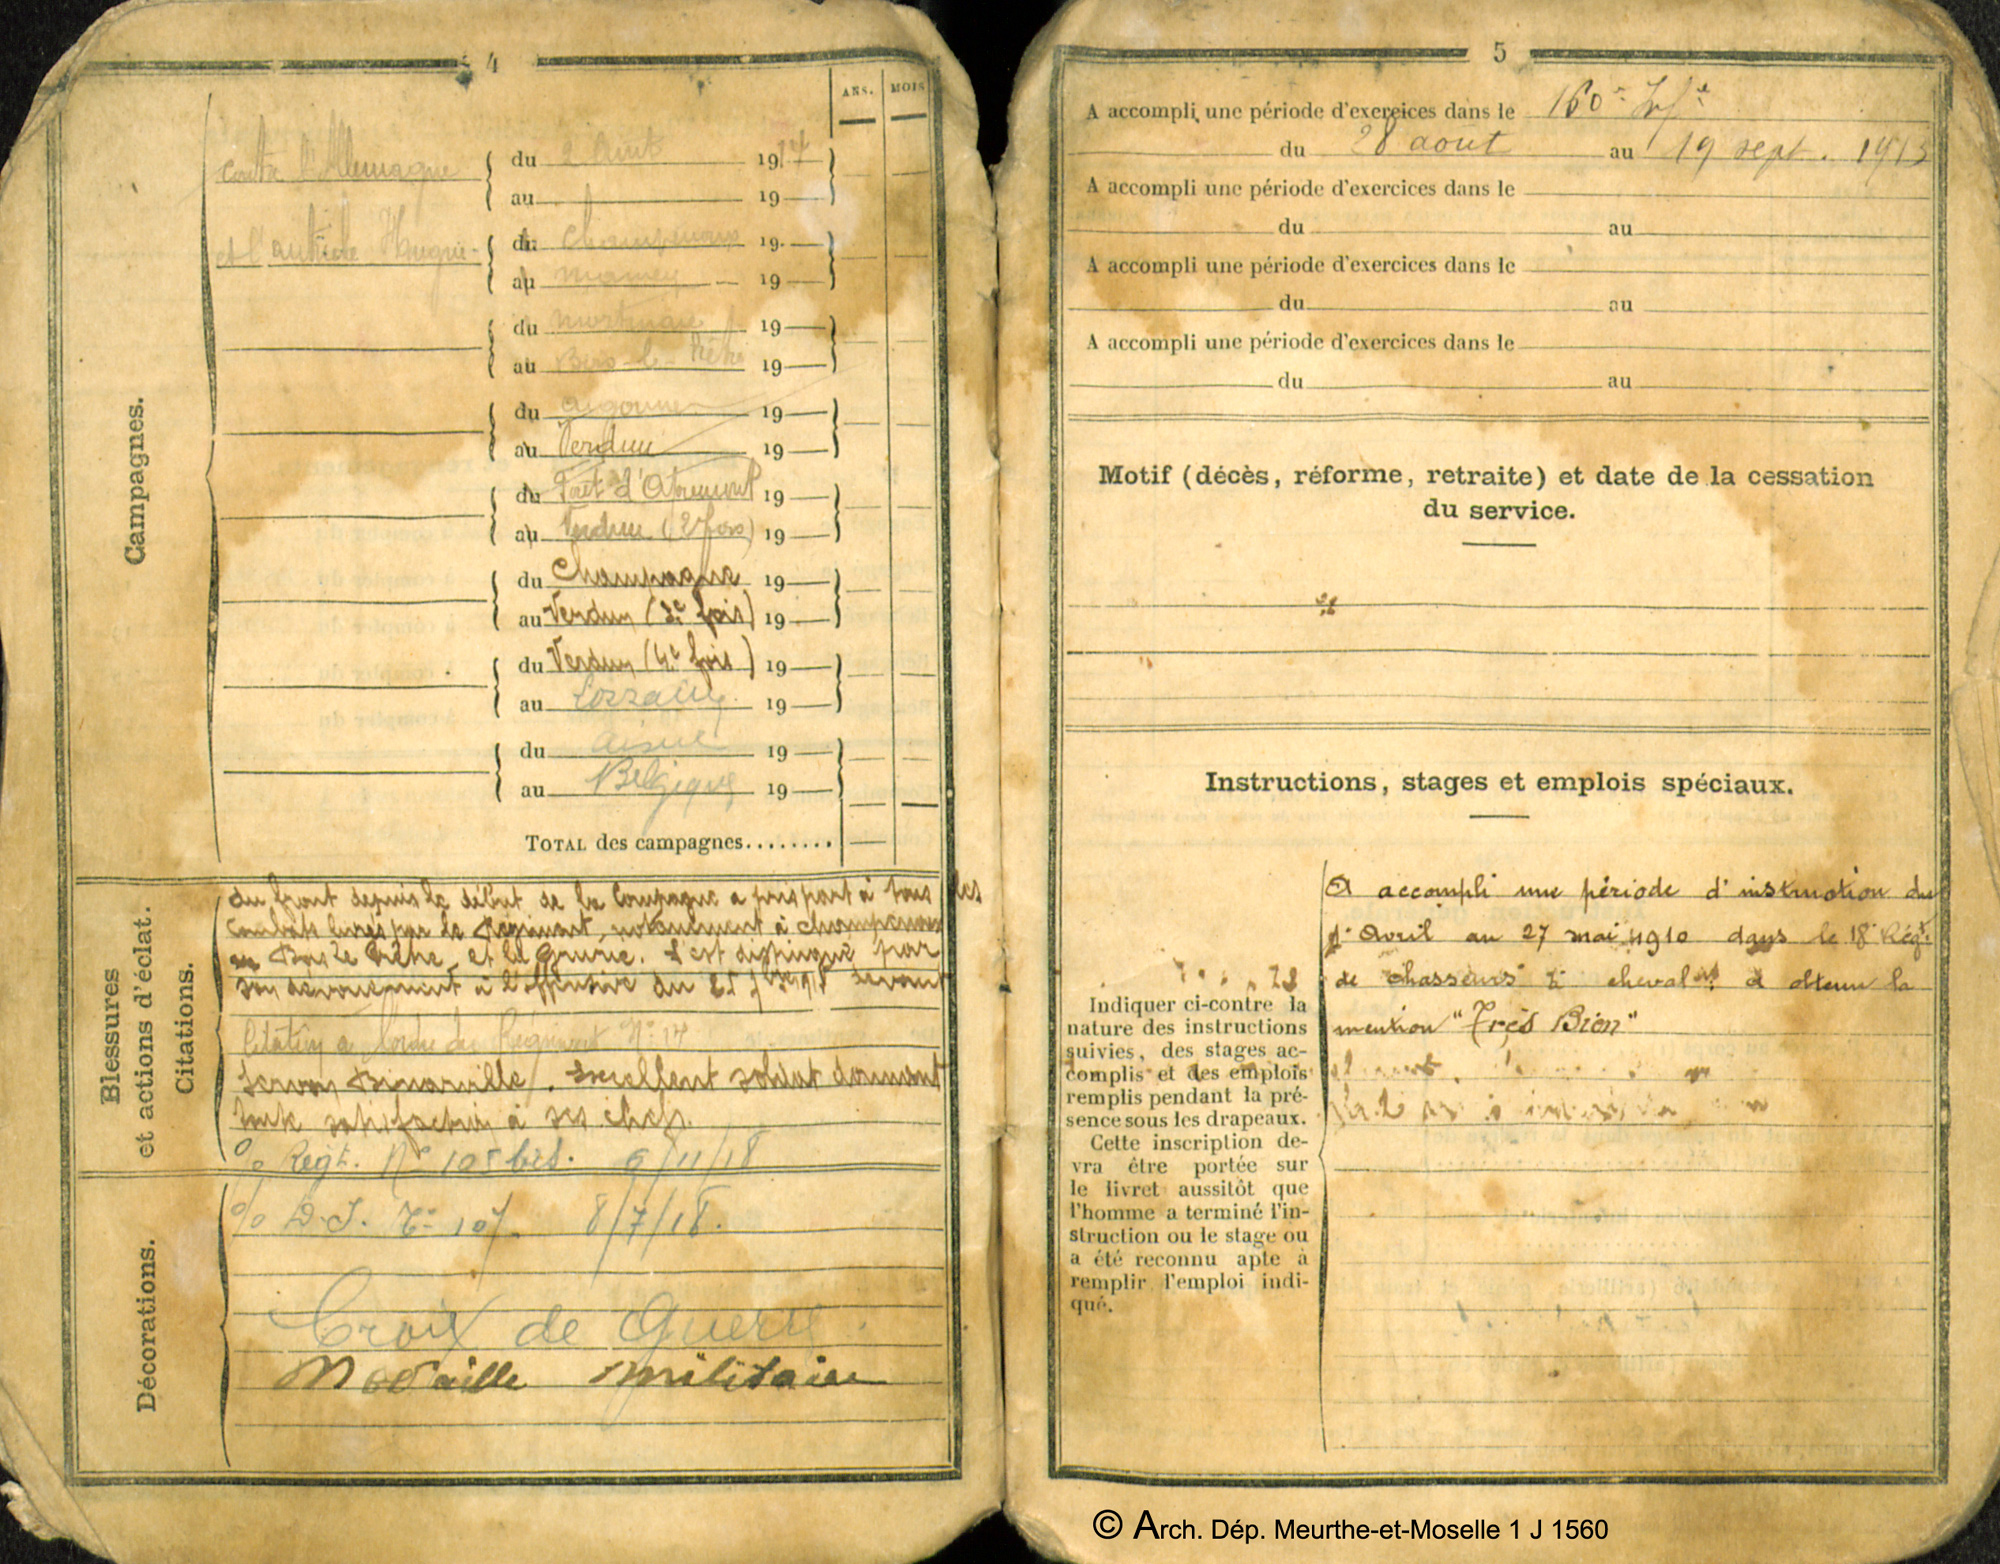 4
ANS. MOIS
Campagnes.
contre l'Allemagne du 2 Août 1914
au 19
et l'Autriche Hongrie du Champenoux 19
au Mamey 19
du 19
au Bois le Prêtre 19
du Argonne 19
au Verdun 19
du Forêt d'Apremont 19
au Verdun (2e fois) 19
du Champagne 19
au Verdun (3e fois) 19
du Verdun (4e fois) 19
au Lorraine 19
du Aisne 19
au Belgique 19
TOTAL des campagnes........
Blessures
et actions d'éclat.
Citations.
du front depuis le début de la Campagne a pris part à tous les
Combats livrés par le Régiment, notamment à Champenoux
au Bois Le Prêtre et la Grurie. S'est distingué par
son dévouement à l'offensive du 25 7bre 1915 devant
Citation à l'ordre du Régiment N° 17
Servon Binarville. Excellent soldat donnant
toute satisfaction à ses chefs.
% Régt. N° 105 bis. 9/11/18
Décorations.
% D.I. N° 107 8/7/18.
Croix de Guerre.
Médaille militaire
5
A accompli une période d'exercices dans le 160e Inf.ie
du 28 août au 19 sept. 1913
A accompli une période d'exercices dans le
du au
A accompli une période d'exercices dans le
du au
A accompli une période d'exercices dans le
du au
Motif (décès, réforme, retraite) et date de la cessation
du service.
Instructions, stages et emplois spéciaux.
Indiquer ci-contre la
nature des instructions
suivies, des stages ac-
complis et des emplois
remplis pendant la pré-
sence sous les drapeaux.
Cette inscription de-
vra être portée sur
le livret aussitôt que
l'homme a terminé l'in-
struction ou le stage ou
a été reconnu apte à
remplir l'emploi indi-
qué.
A accompli une période d'instruction du
1er Avril au 27 mai 1910 dans le 18e Régt
de chasseurs à cheval et a obtenu la
mention "Très Bien"
© Arch. Dép. Meurthe-et-Moselle 1 J 1560